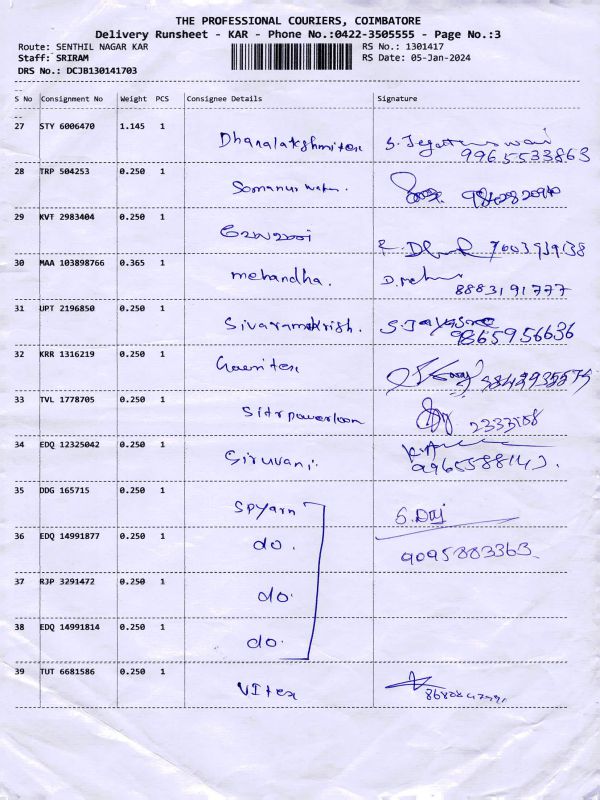 THE PROFESSIONAL COURIERS, COIMBATORE
Delivery Runsheet - KAR - Phone No.:0422-3505555 - Page No.:3
Route: SENTHIL NAGAR KAR RS No.: 1301417
Staff: SRIRAM RS Date: 05-Jan-2024
DRS No.: DCJB130141703
S No Consignment No Weight PCS Consignee Details Signature
27 STY 6006470 1.145 1 Dhanalakshmitex
9965533863
28 TRP 504253 0.250 1 Somanur
29 KVT 2983404 0.250 1
30 MAA 103898766 0.365 1 mehandha.
8883191777
31 UPT 2196850 0.250 1 Sivaramakrish.
9865956636
32 KRR 1316219 0.250 1
33 TVL 1778705 0.250 1 Sitrpowerloom
34 EDQ 12325042 0.250 1 Siruvani.
35 DDG 165715 0.250 1 SPyarn
36 EDQ 14991877 0.250 1 do.
9095883363
37 RJP 3291472 0.250 1 do.
38 EDQ 14991814 0.250 1 do.
39 TUT 6681586 0.250 1 VItex